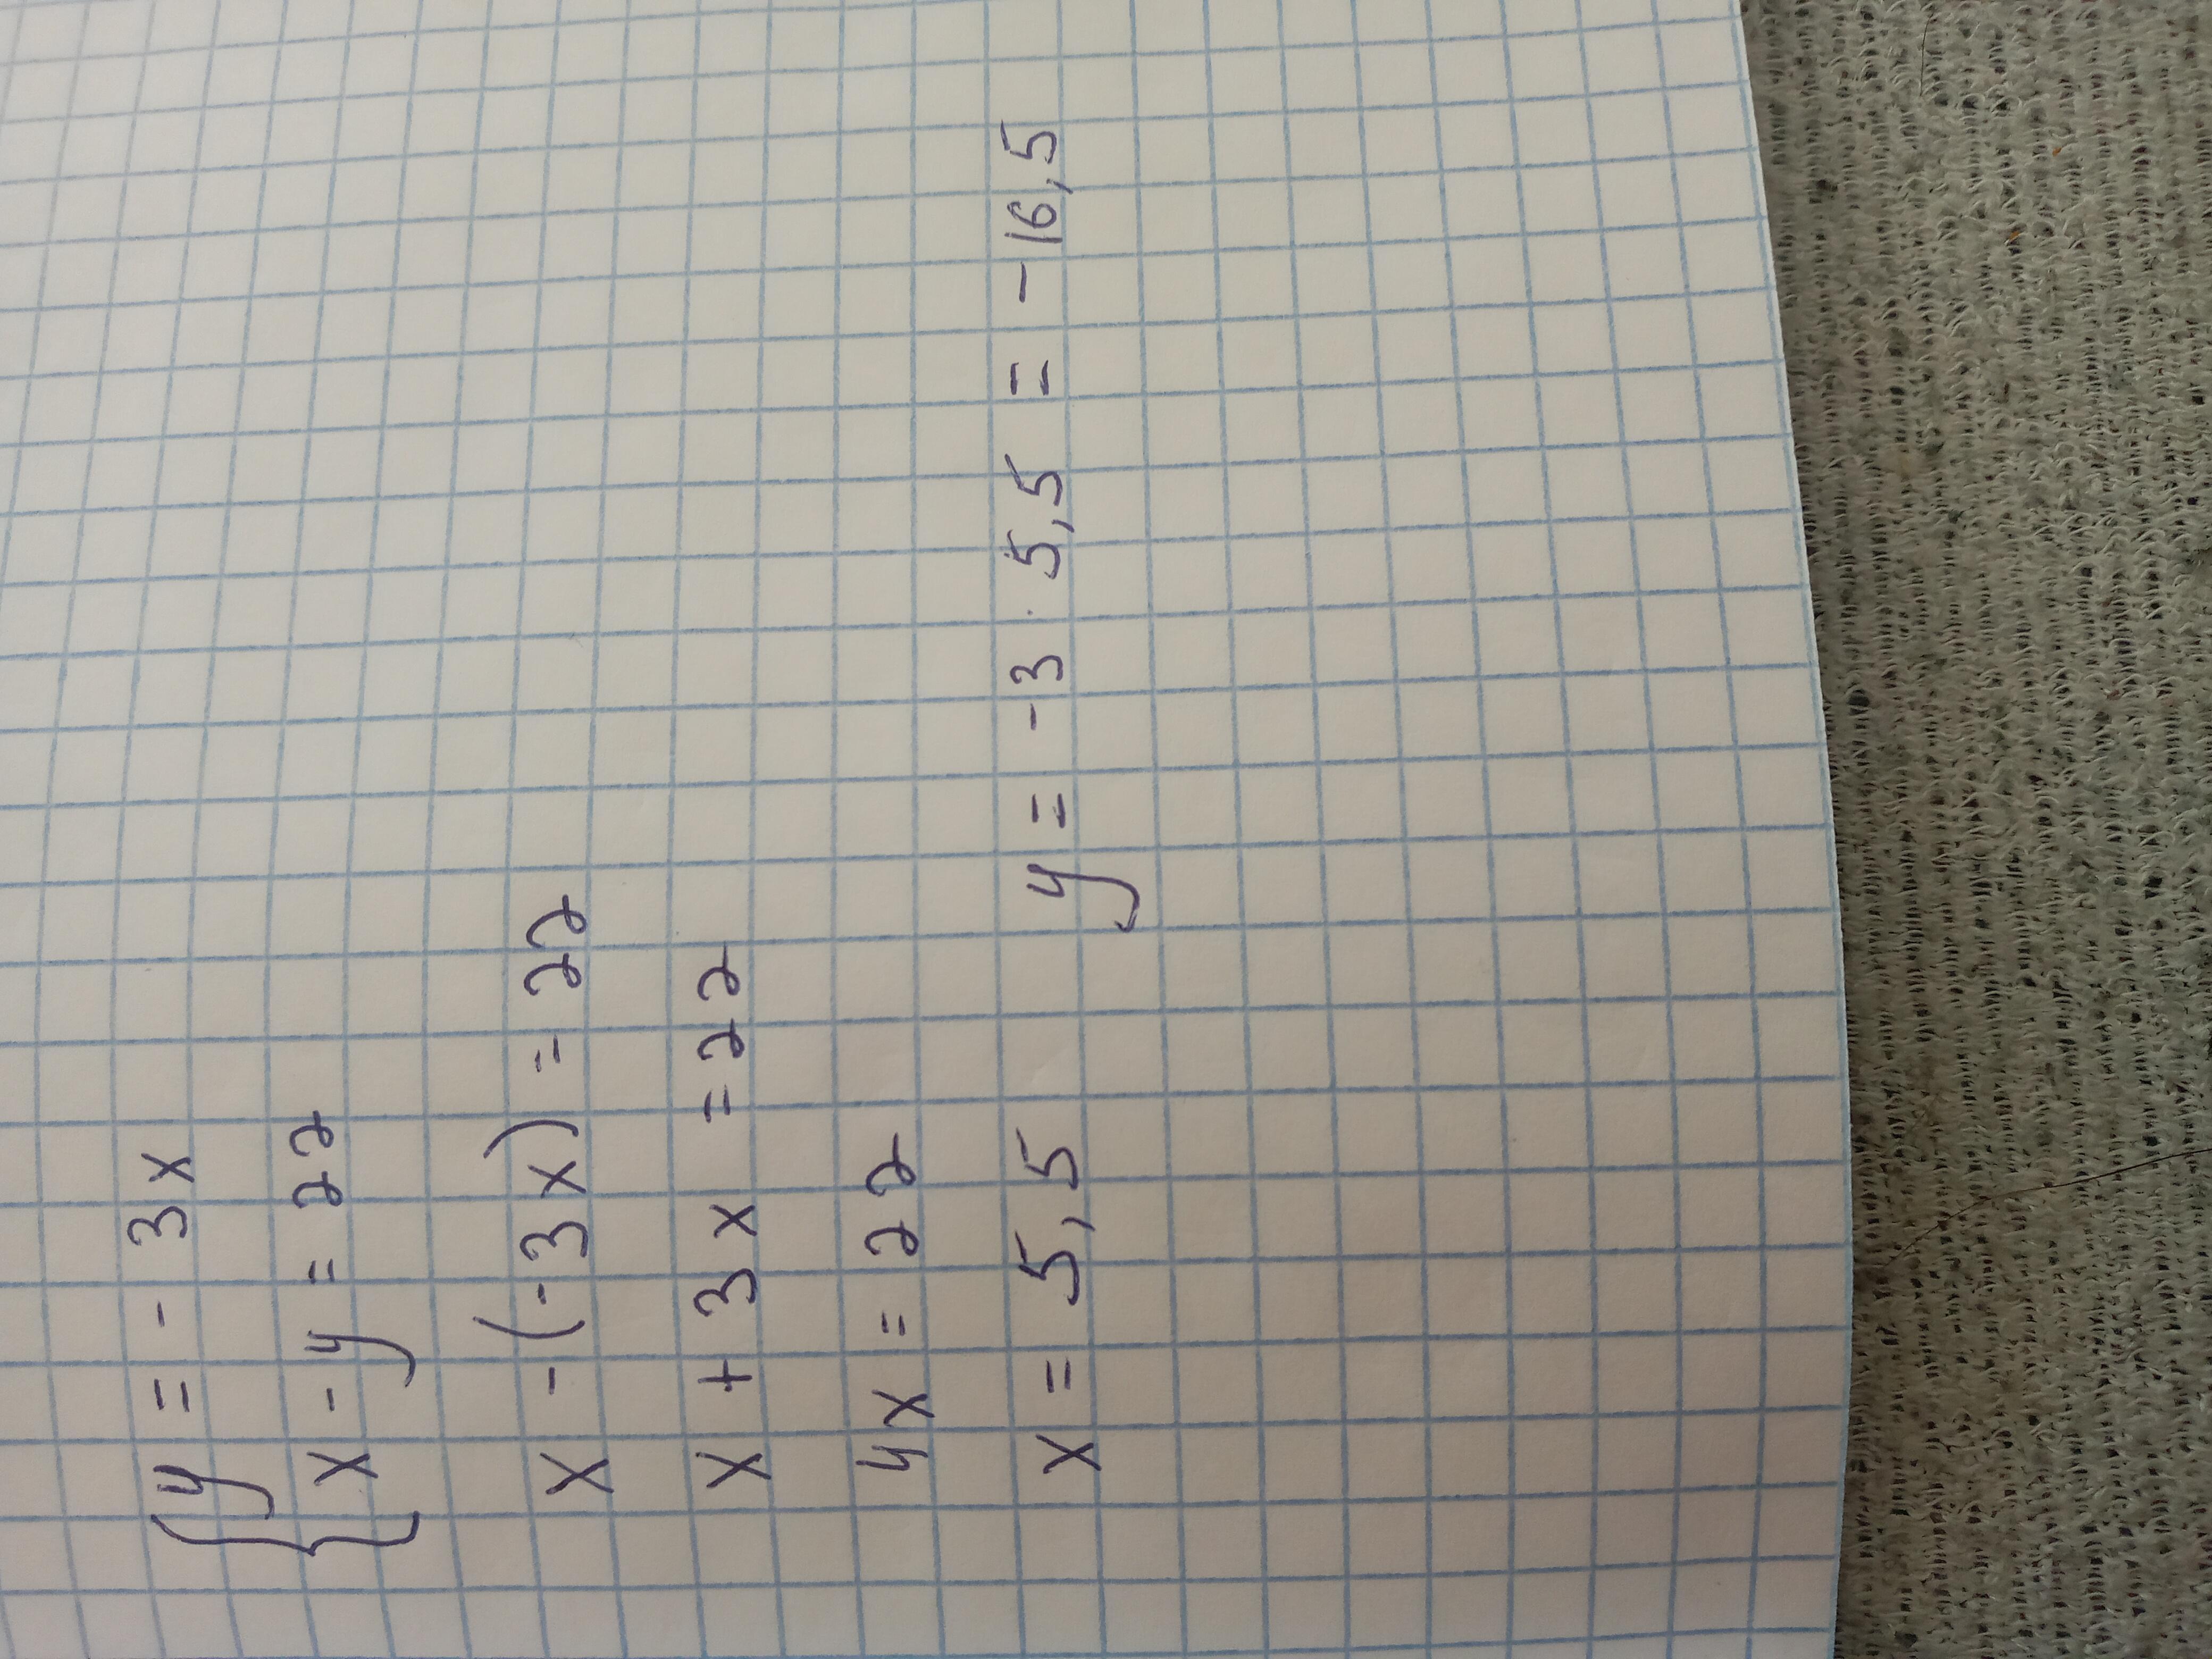 { y = - 3x
x - y = 22
x - (-3x) = 22
x + 3x = 22
4x = 22
x = 5,5 y = -3 · 5,5 = -16,5